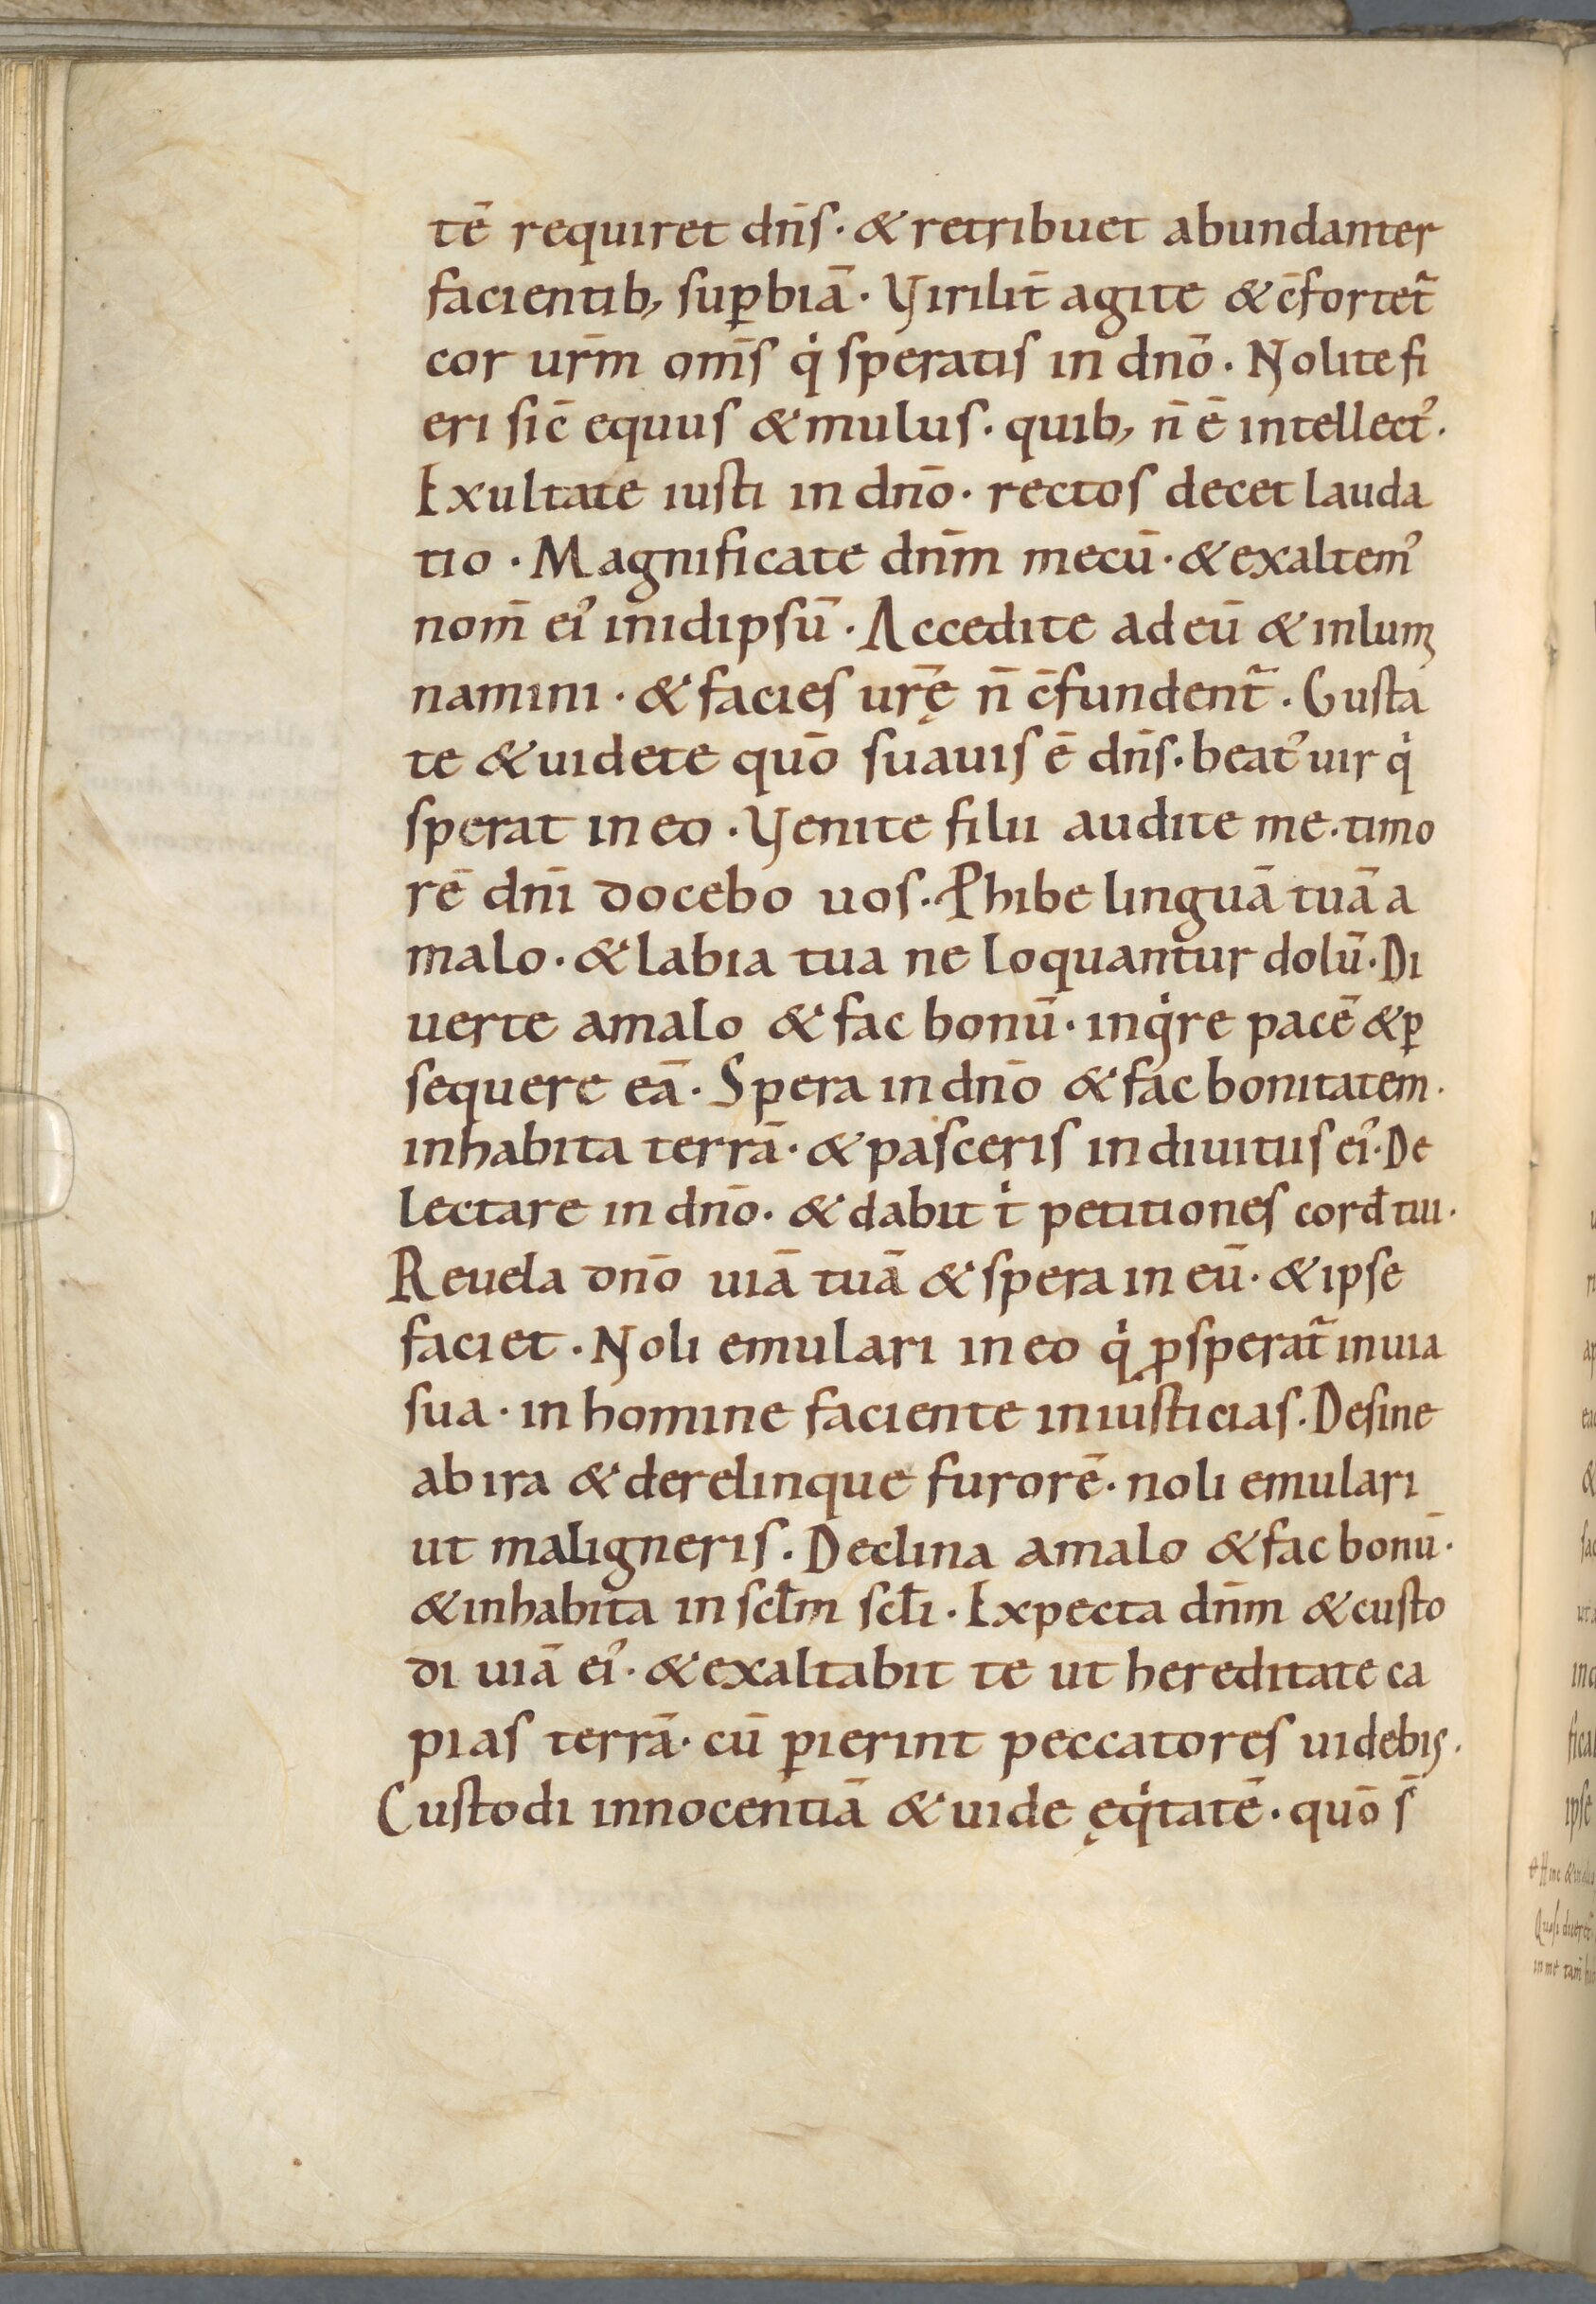 tē requiret dn̄s · & retribuet abundanter
facientib, suꝑbiā · Virilit̄ agite & c̄fortet᷑
cor ur̄m om̄s q̇ speratis in dn̄o · Nolite fi
eri sic̄ equus & mulus · quib, n̄ ē intellect᾿ ·
Exultate iusti in dn̄o · rectos decet lauda
tio · Magnificate dn̄m mecū · & exaltem᾿
nom̄ ei᾿ in idipsū · Accedite ad eū & inlumi
namini · & facies ur̄ę n̄ c̄fundent᷑ · Gusta
te & uidete quō suauis ē dn̄s · beat᾿ uir q̇
sperat in eo · Venite filii audite me · timo
rē dn̄i docebo uos · Ꝓhibe linguā tuā a
malo · & labia tua ne loquantur dolū · Di
uerte a malo & fac bonū · inq̇re pacē & ꝑ
sequere eā · Spera in dn̄o & fac bonitatem ·
inhabita terrā · & pasceris in diuitiis ei᾿ · De
lectare in dn̄o · & dabit ṫ petitiones cord̄ tui ·
Reuela dn̄o uiā tuā & spera in eū · & ipse
faciet · Noli emulari in eo q̇ ꝓsperat᷑ in uia
sua · in homine faciente iniusticias · Desine
ab ira & derelinque furorē · noli emulari
ut maligneris · Declina a malo & fac bonū ·
& inhabita in scl̄m scl̄i · Expecta dn̄m & custo
di uiā ei᾿ · & exaltabit te ut hereditate ca
pias terrā · cū ꝑierint peccatores uidebis ·
Custodi innocentiā & uide ęq̇tatē · quō s̄